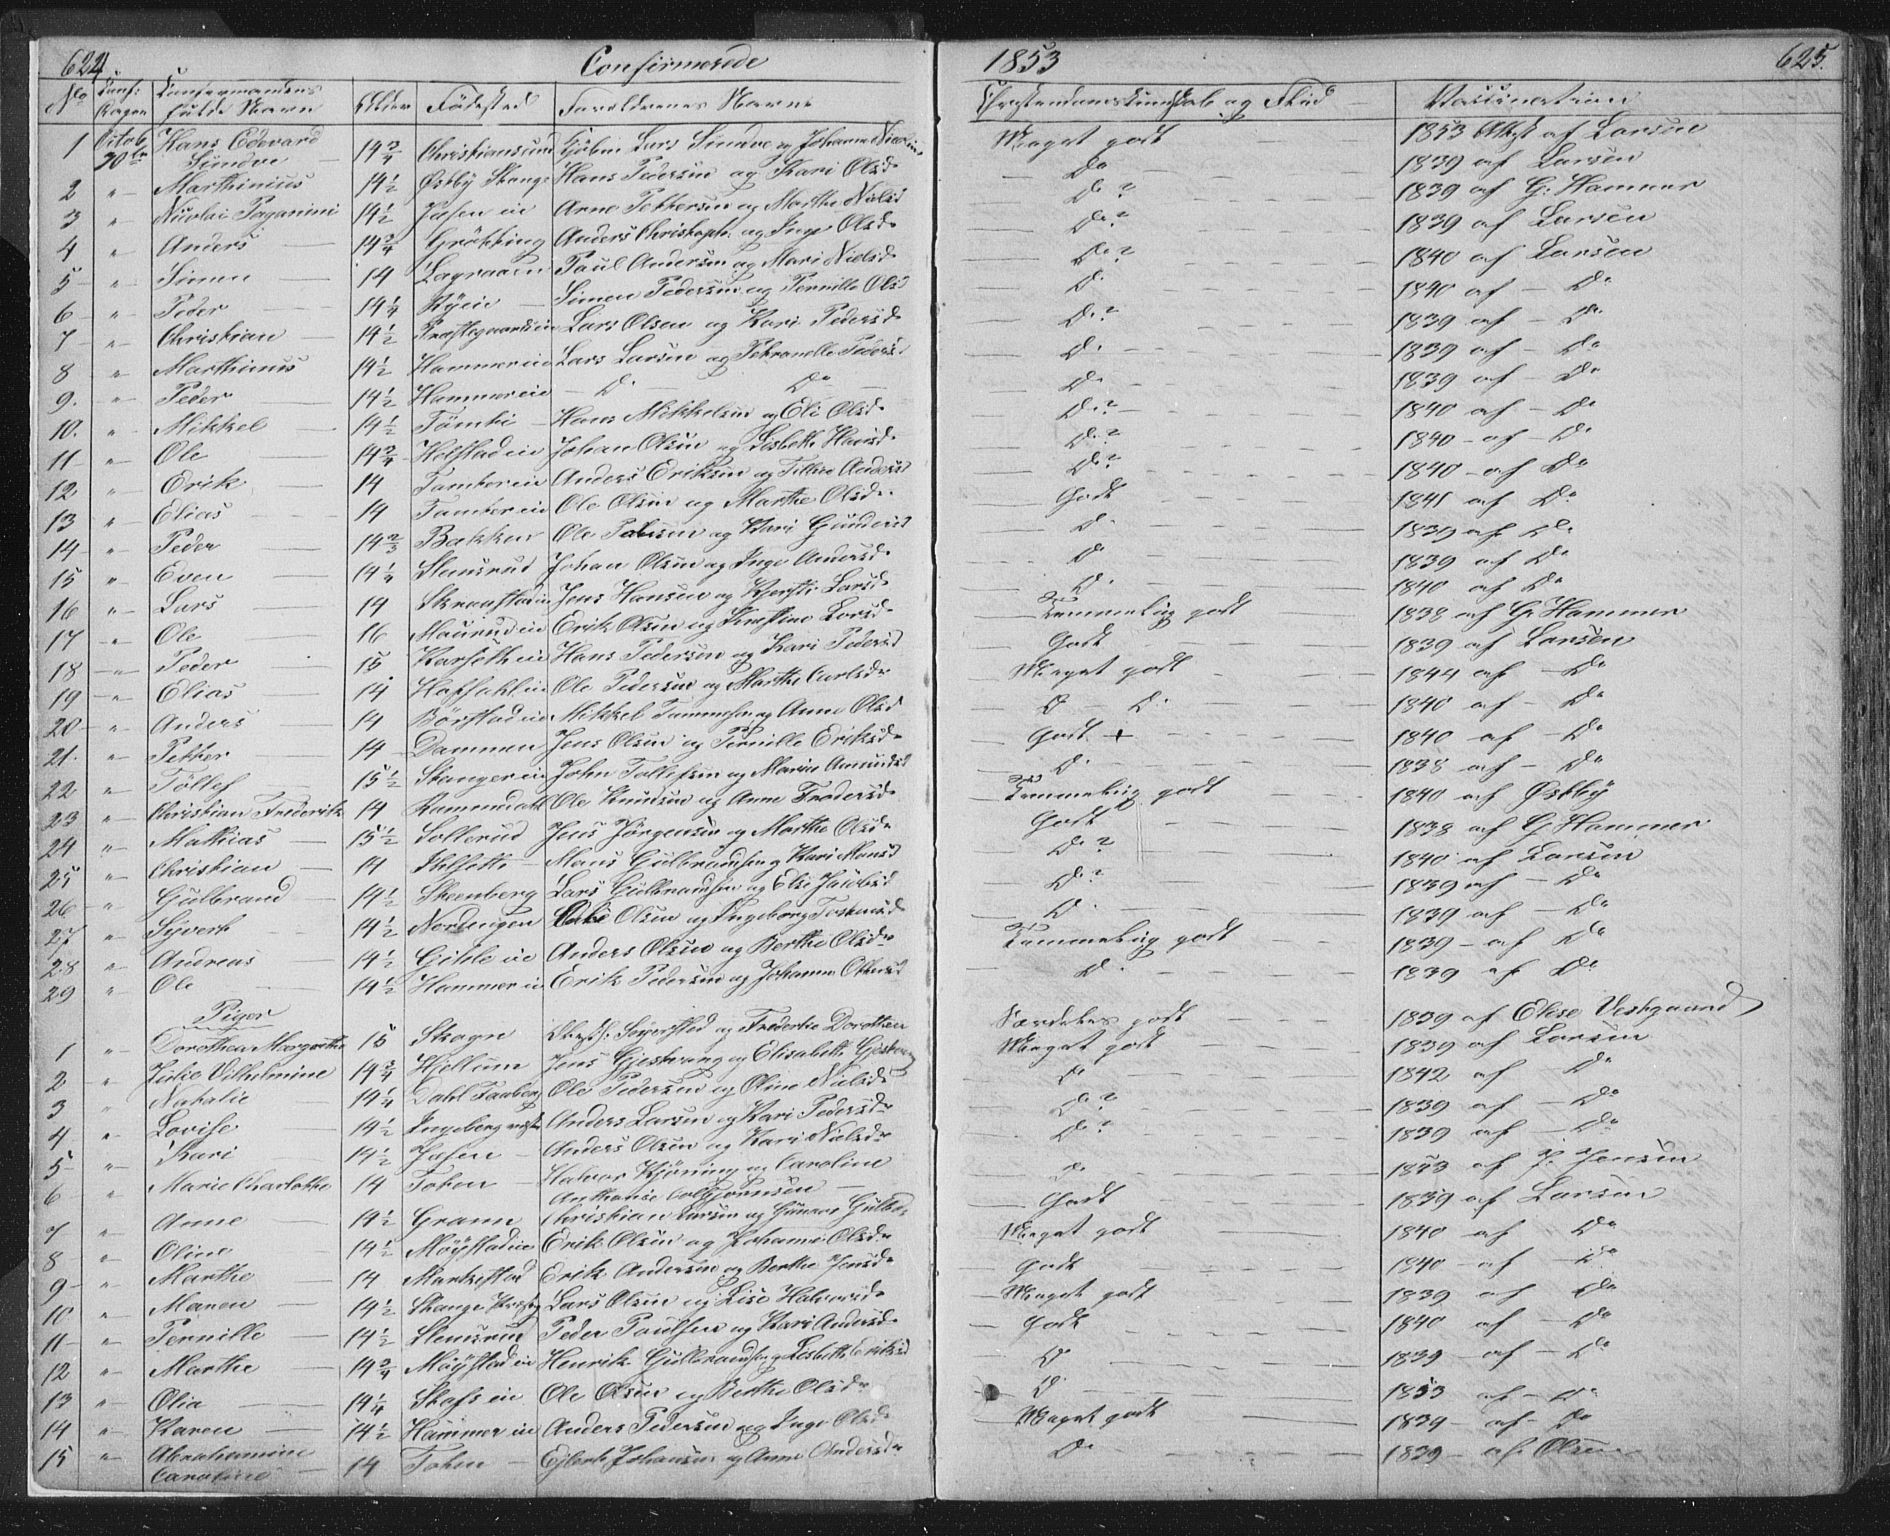 624 Confirmerede
1853 625.
No Conf: Dagen Confirmandens fulde Navn Alder Fødested Forældrenes Navne
Christendomskundskab og Flid Vaccination
1 Octob. Hans Edevard Sundve 14 3/4 Christiansund Lars Sundve og Johanne Meget godt 1853 Attest af Larsen
2 " Marthinius 14 1/2 Østby Stange Hans Pedersen og Kari Olsd. Do 1839 af Larsen
3 " Nicolai Paganini 14 1/2 Jasen eie Arne Pettersen og Marthe Nielsd Do? 1839 af G: Hammer
4 " Anders 14 3/4 Grøtting Anders Christoph. og Inge Olsd. Do? 1839 af Larsen
5 " Simen 14 Paul Andersen og Mari Nielsd. Do? 1840 af Larsen
6 " Peder 14 1/4 Ryeie Simen Pedersen og Pernille Olsd D. 1840 af Do
7 " Christian 14 1/2 Præstegaardseie Lars Olsen og Kari Pedersd. D.? 1839 af Do
8 " Marthinus 14 1/2 Hammereie Lars Larsen og Petronelle Pedersd D. 1839 af Do
9. " Peder 14 1/2 Hammereie D. Do D. 1839 af Do
10. " Mikkel 14 1/2 Tømte Hans Mikkelsen og Eli Olsd. D.? 1840 af Do
11 " Ole 14 3/4 Holstad eie Johan Olsen og Lisbeth Hansd. D.? 1840 af Do
12 " Erik 14 Tomter eie Anders Eriksen og Andersd D.? 1840 af Do
13 " Elias 14 Tomter eie Ole Olsen og Marthe Olsd. Godt 1841 af Do
14 " Peder 14 2/3 Bakken Ole og Kari Gundersd D. 1839 af Do
15 " Even 14 1/4 Stensrud Johan Olsen og Inge Andersd. D. 1839 af Do
16 " Lars 14 Skramstad eie Jens Hansen og Kjersti Larsd. D. 1840 af Do
17 " Ole 16 Maurud eie Erik Olsen og Kirstine Larsd. Temmelig godt 1838 af G: Hammer
18 " Peder 15 Karseth eie Hans Pedersen og Kari Pedersd Godt 1839 af Larsen
19 " Elias 14 Hafsahl eie Ole Pedersen og Marthe Carlsd. Meget godt 1844 af Do
20 " Anders 14 Børstad eie Mikkel Tommesen og Anne Olsd D. D. 1840 af Do
21. " Petter 14 Dammen Jens Olsen og Pernille Eriksd. Godt + 1840 af Do
22 " Tøllef 15 1/2 Stanger eie John Tollefsen og Marie Amundsd D. 1838 af Do
23 " Christian Frederik 14 Rammendahl Ole Knudsen og Anne Temmelig godt 1840 af Østby
24 " Mathias 15 1/2 Sollerud Jens Jørgensen og Marthe Olsd. Godt 1838 af G: Hammer
25 " Christian 14 Mons Gulbrandsen og Kari Monsd D.? 1840 af Larsen
26 " Gulbrand 14 1/2 Steenberg Lars Gulbrandsen og Else Jacobsd D.? 1839 af Do
27 " Syvert 14 1/2 Nordengen Olsen og Ingeborg D. 1839 af Do
28 " Andreas 14 1/2 Gihle eie Anders Olsen og Berthe Olsd. Temmelig godt 1839 af Do
29 " Ole 14 1/2 Hammer eie Erik Pedersen og Johanne D. 1839 af Do
Piger
1 " Dorothea Margrethe 15 Skogn og Frederike Dorothea Særdeles godt 1839 af Elise Vestgaard
2 " Julie Vilhelmine 14 3/4 Hjellum Jens Gjestvang og Elisabeth Gjestvang Meget godt 1839 af Larsen
3 " Nathalie 14 1/4 Dahl Faaberg Ole Pedersen og Oline Nielsd. D. 1842 af Do
4 " Lovise 14 1/2 Ingeberg Anders Larsen og Kari Pedersd. D.? 1839 af Do
5 " Kari 14 1/2 Jasen Anders Olsen og Kari Nielsd. D.? 1839 af Do
6 " Marie Charlotte 14 Tohen Halvor Kjørning og Caroline D. 1853 af P. Jensen
7 " Anne 14 1/2 Gram Christian Larsen og Gunnor Gulbr. Godt 1839 af Larsen
8 " Oline 14 1/2 Møystad eie Erik Olsen og Johanne Olsd. Meget godt 1840 af Do
9 " Marthe 14 Erik Andersen og Berthe Jensd. Godt 1840 af Do
10 " Maren 14 1/2 Stange Lars Olsen og Lise Halvorsd. Meget godt 1839 af Do
11 " Pernille 14 1/2 Stensrud Peder Paulsen og Kari Andersd. Godt 1840 af Do
12 " Marthe 14 3/4 Møystad eie Henrik Gulbrandsen og Lisbeth Eriksd D. 1839 af Do
13 " Olia 14 1/4 Ole Olsen og Berthe Olsd. D. 1853 af Do
14 " Karen 14 1/2 Hammer eie Anders Pedersen og Inge Olsd. Meget godt 1839 af Do
15 " Abrahamine Caroline 14 Tohen Ejlert Johansen og Anne Andersd. Do 1839 af Olsen